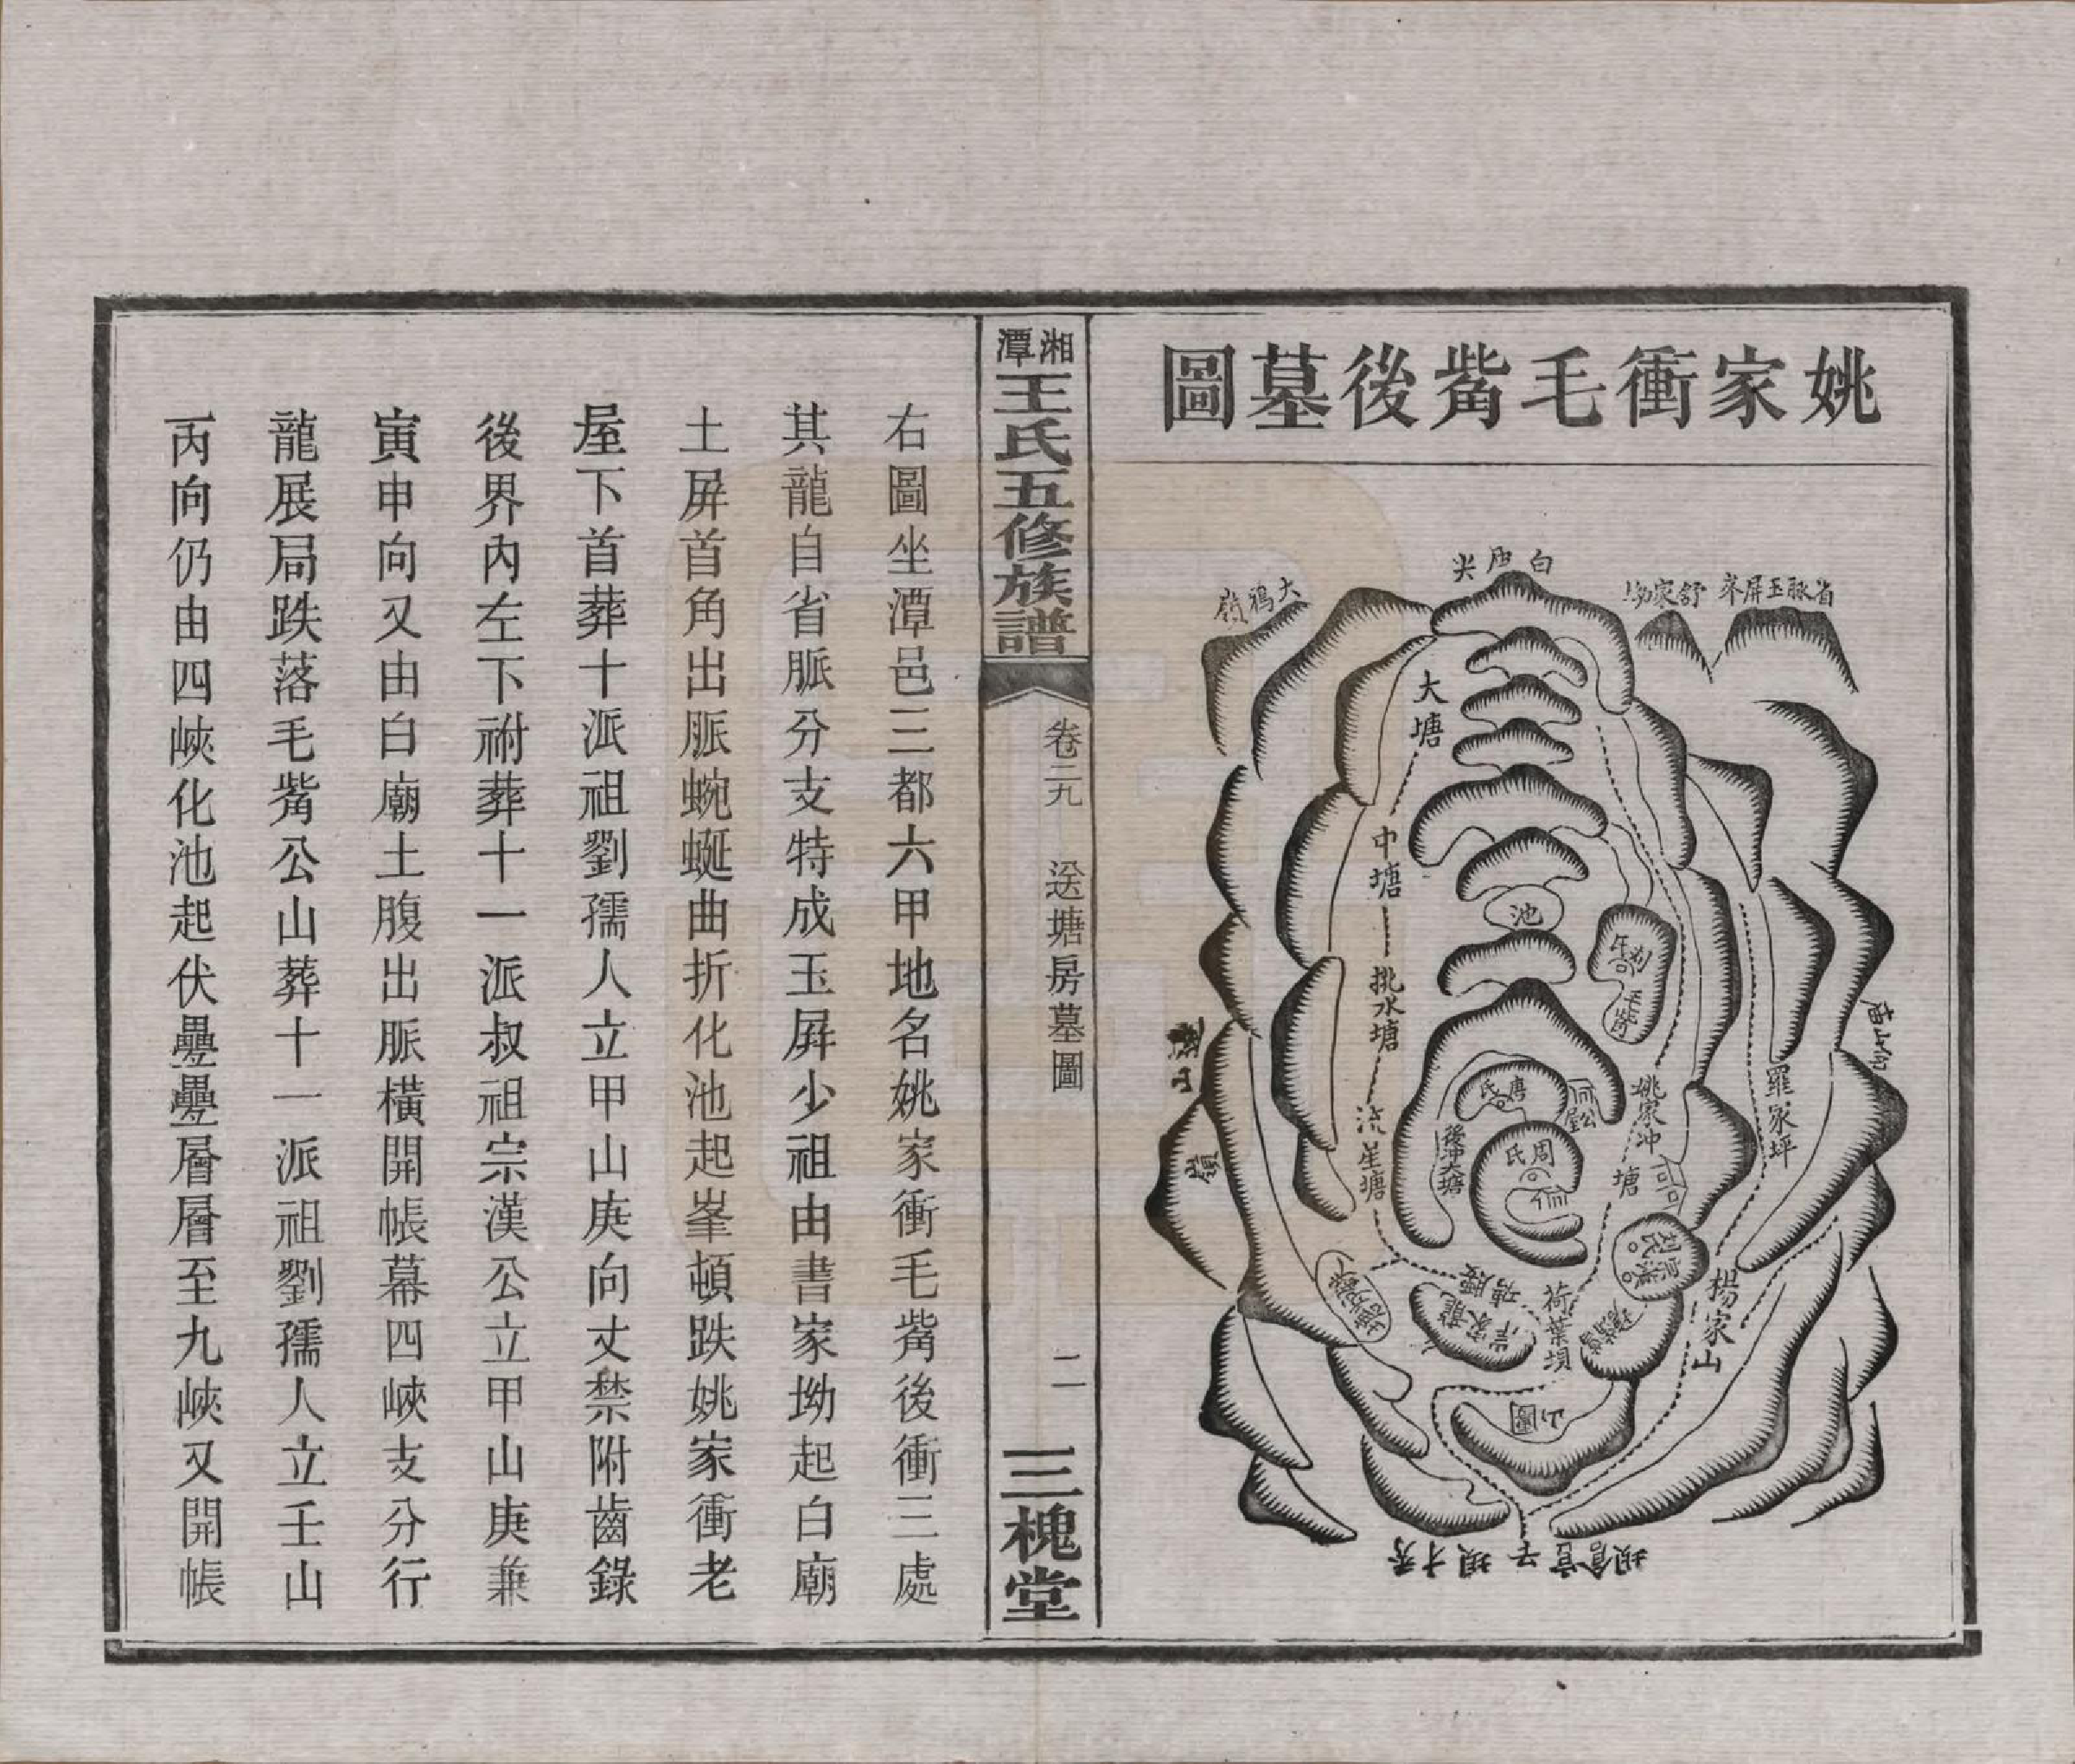 姚家衝毛觜後墓圖
省脈玉屏峯
舒家坳
白庙尖
大鴉嶺
大塘
中塘
挑水塘
流星塘
池
唐氏
周氏
後冲大塘
姚家冲
塘
羅家坪
楊家山
荷葉垻
湘潭王氏五修族譜
卷二九
送塘房墓圖
二
三槐堂
右圖坐潭邑三都六甲地名姚家衝毛觜後衝三處
其龍自省脈分支特成玉屏少祖由書家坳起白廟
土屏首角出脈蜿蜒曲折化池起峯頓跌姚家衝老
屋下首葬十派祖劉孺人立甲山庚向丈禁附齒錄
後界內左下祔葬十一派叔祖宗漢公立甲山庚兼
寅申向又由白廟土腹出脈橫開帳幕四峽支分行
龍展局跌落毛觜公山葬十一派祖劉孺人立壬山
丙向仍由四峽化池起伏疊疊層層至九峽又開帳